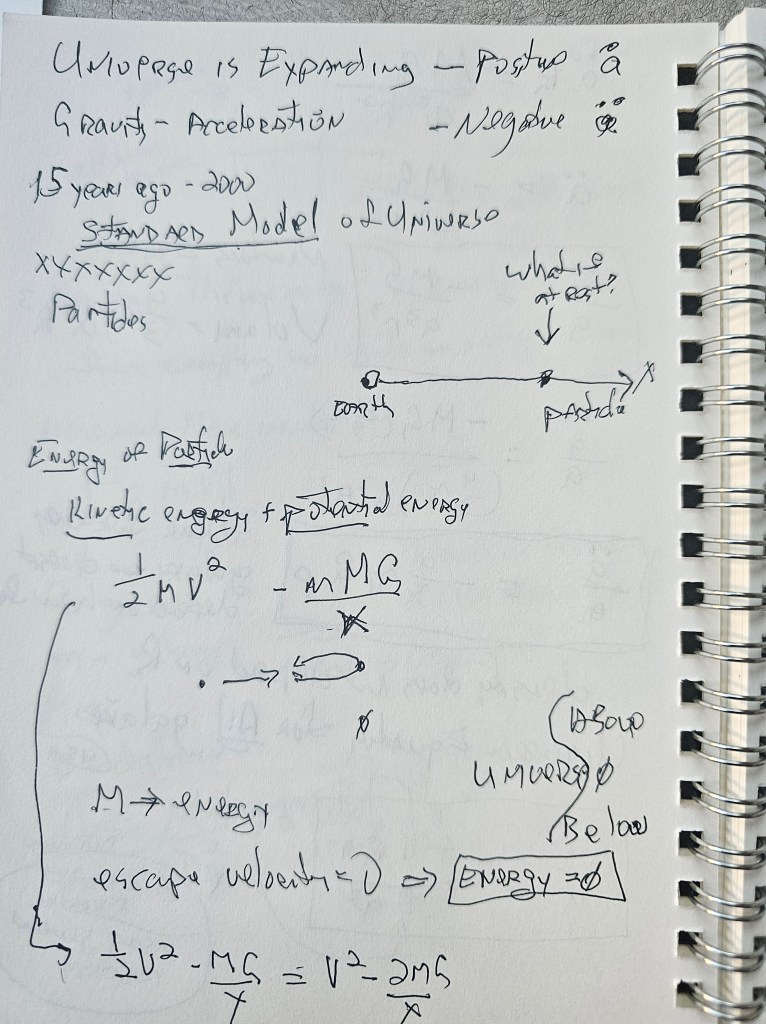 Universe is Expanding — Positive ȧ
Gravity - Acceleration - Negative ä
15 years ago - 2000
STANDARD Model of Universe
XXXXXXX
Particles
What is
at rest?
X
EARTH
particle
Energy of Particle
Kinetic energy + potential energy
1/2 M V² - mMG/X
ø
Above
Universe ø
Below
M → energy
escape velocity = 0 ⇒ ENERGY = ø
1/2 V² - MG/X = V² - 2MG/X